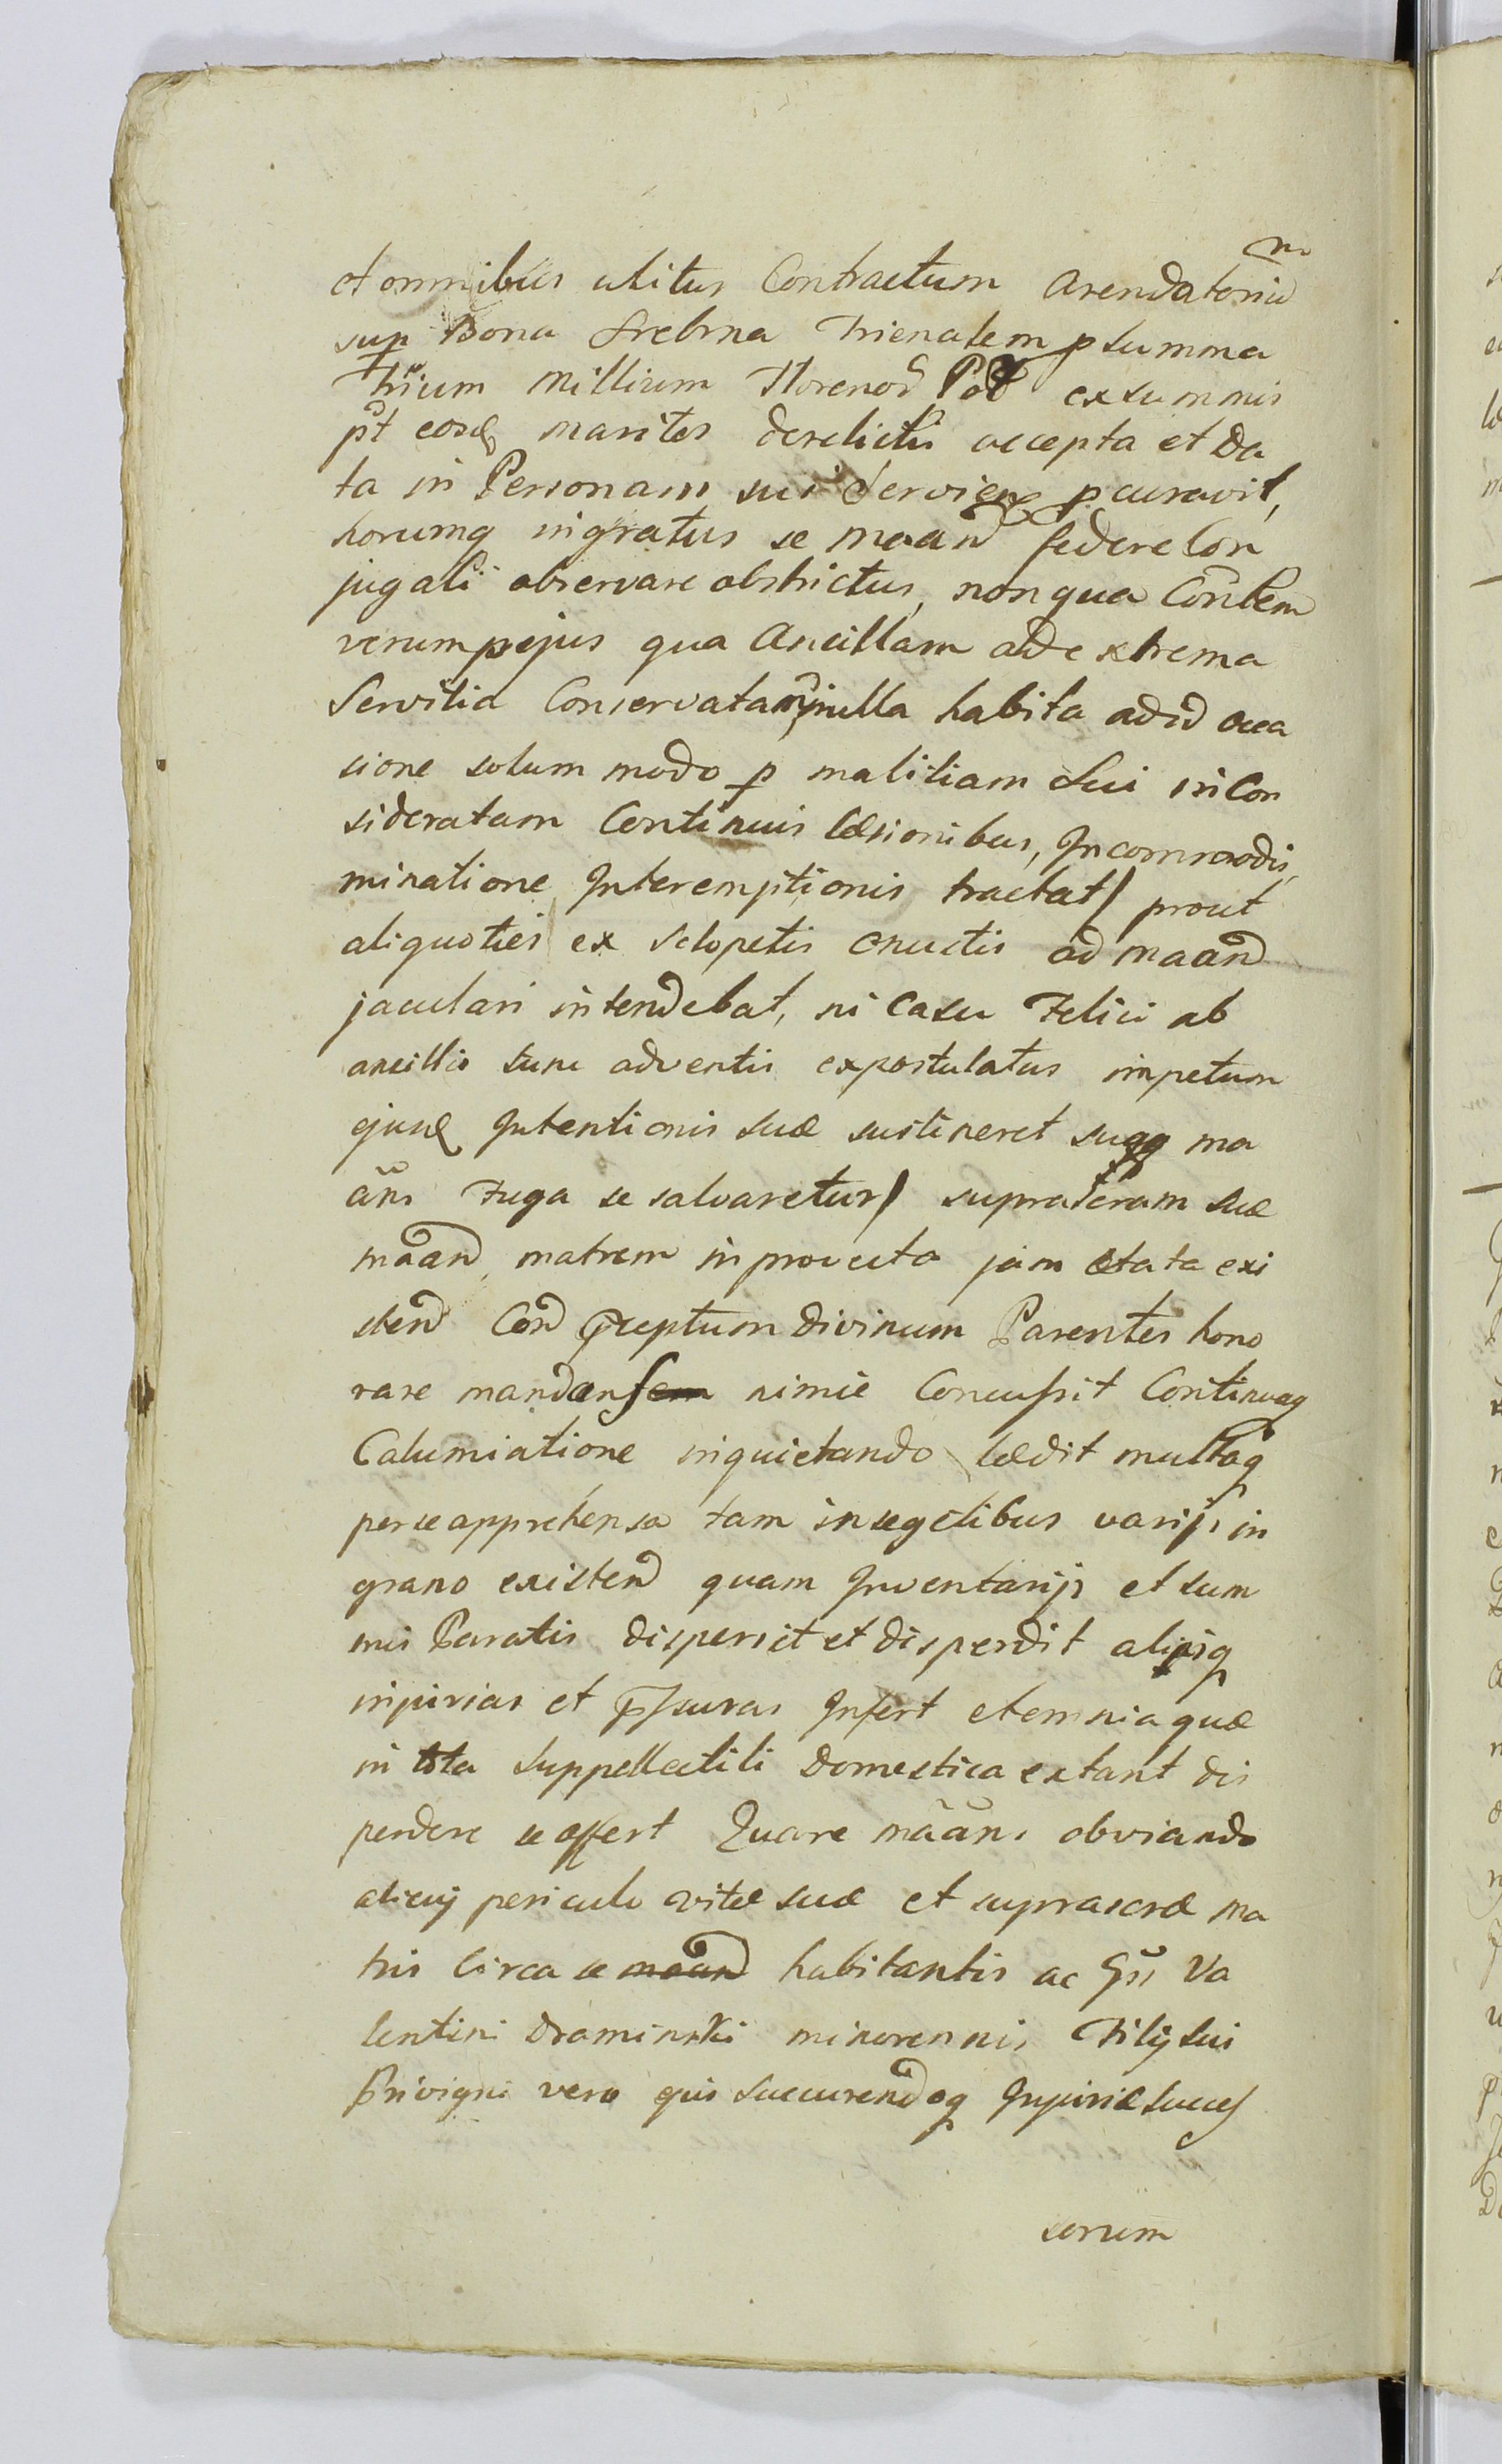 et omnibus utitur Contractum Arendatoriũ
sup Bona Srebrna Trienalem p summa
Trium Millium Florenoꝝ Pol ex summis
pt eosd maritos derelictis accepta et Da
ta in Personam sui Servien pcuravit,
horumq ingratus se maand federe Con
jugali observare obstrictus, non qua Cõntem
verum pejus qua Ancillam ad extrema
Servitia Conservatam, nulla habita ad id occa
sione solum modo p malitiam sui incon
sideratam Continuis læsionibus, Incommodis,
minatione Interemptionis tractat / prout
aliquoties ex sclopetis onustis ad maand
jaculari intendebat, ni Casu Felici ab
ancillis tunc adventis expostulatus impetum
ejusd Intentionis suæ sustineret sugq ma
ãns Fuga se salvaretur / supra scram suæ
mãand, matrem in provecta jam ætata exi
stend Con præptum divinum Parentes hono
rare mandans nimie Concussit Continuaq
Calumiatione inquietando lædit multaq
per se apprehensa tam in segetibus varijs in
grano existend quam Inventarijs et sum
mis Paratis dispersit et disperdit alijsq
injurias et pssuras Infert et omnia quæ
in tota Suppellectili Domestica extant dis
perdere se offert Quare mãans obviando
alicuj periculo vitæ suæ et suprascræ ma
tris Circa se maand habitantis ac Gsi Va
lentini Draminski minorennis Filij sui
Privigni vero ejus succurendoq Injuriæ succes
sorum